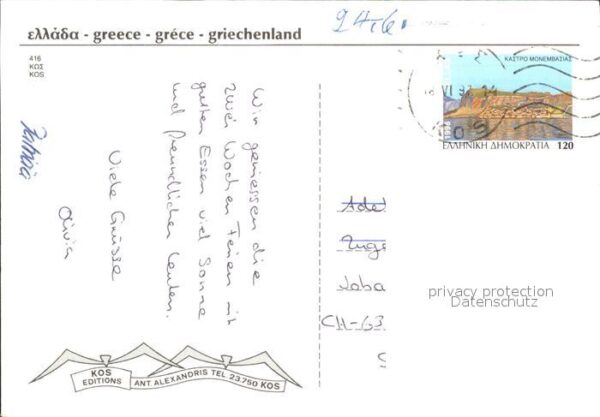 24.6.
ελλάδα - greece - gréce - griechenland
416
ΚΩΣ
KOS
ΚΑΣΤΡΟ ΜΟΝΕΜΒΑΣΙΑΣ
ΕΛΛΗΝΙΚΗ ΔΗΜΟΚΡΑΤΙΑ 120
Wir geniessen die
zwei Wochen Ferien mit
gutem Essen viel Sonne
und freundlichen Leuten.
Viele Grüsse
Olivia
Patricia
Adel
CH-63
privacy protection
Datenschutz
KOS
EDITIONS
ANT. ALEXANDRIS TEL 23.750 KOS